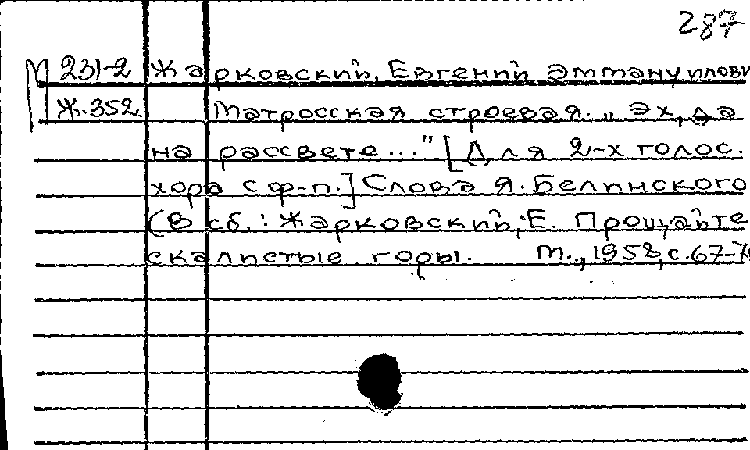 287
М 231-2 Жарковский, Евгений Эммануилови
Ж.352 Матросская строевая. „Эх, да
на рассвете..." [Для 2-х голос.
хора с ф-п.] Слова Я. Белинского
(В сб.: Жарковский, Е. Прощайте
скалистые горы. М., 1958, с. 67-70